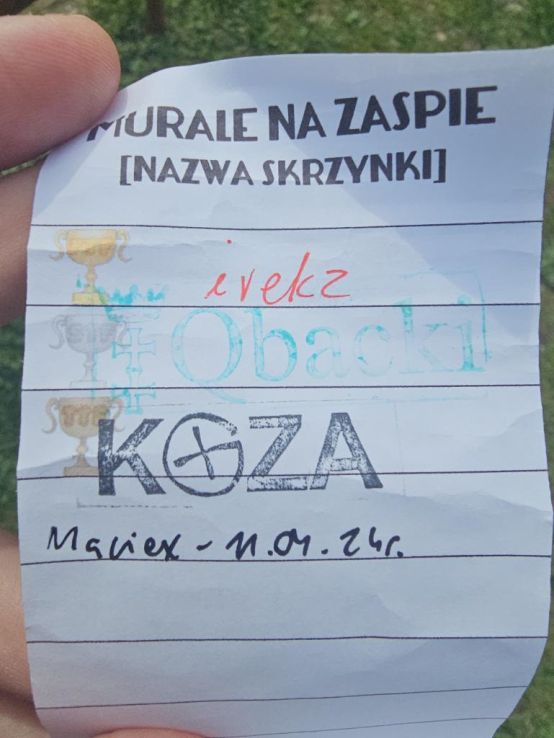 MURALE NA ZASPIE
[NAZWA SKRZYNKI]
irekz
Qbacki
KOZA
Maciex - 11.04.24r.